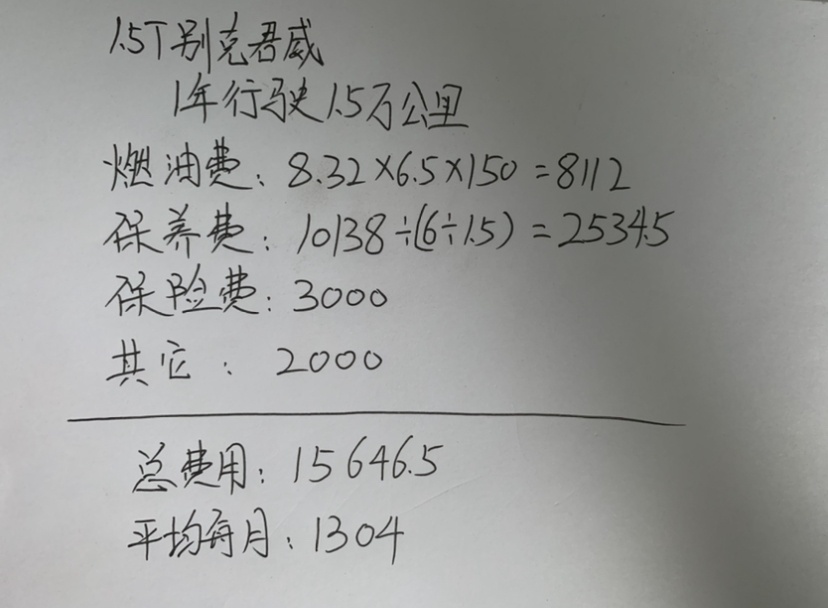 1.5T别克君威
1年行驶1.5万公里
燃油费：8.32×6.5×150=8112
保养费：10138÷(6÷1.5)=2534.5
保险费：3000
其它：2000
总费用：15646.5
平均每月：1304